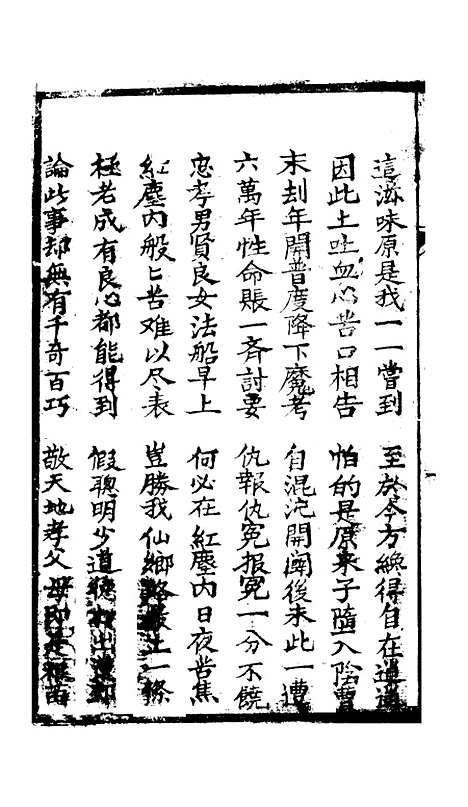 這滋味原是我一一嘗到 至於今方纔得自在逍遙
因此上吐血心苦口相告 怕的是原来子隨入陰曹
末刦年開普度降下魔考 自混沌開闢後未此一遭
六萬年性命賬一斉討要 仇報仇冤报冤一分不饒
忠孝男賢良女法船早上 何必在紅塵内日夜苦焦
紅塵内般〻苦难以尽表 豈勝我仙鄉 一
極老成有良心都能得到 假聰明少道
論此事却無有千奇百巧 敬天地孝父母即是 苗